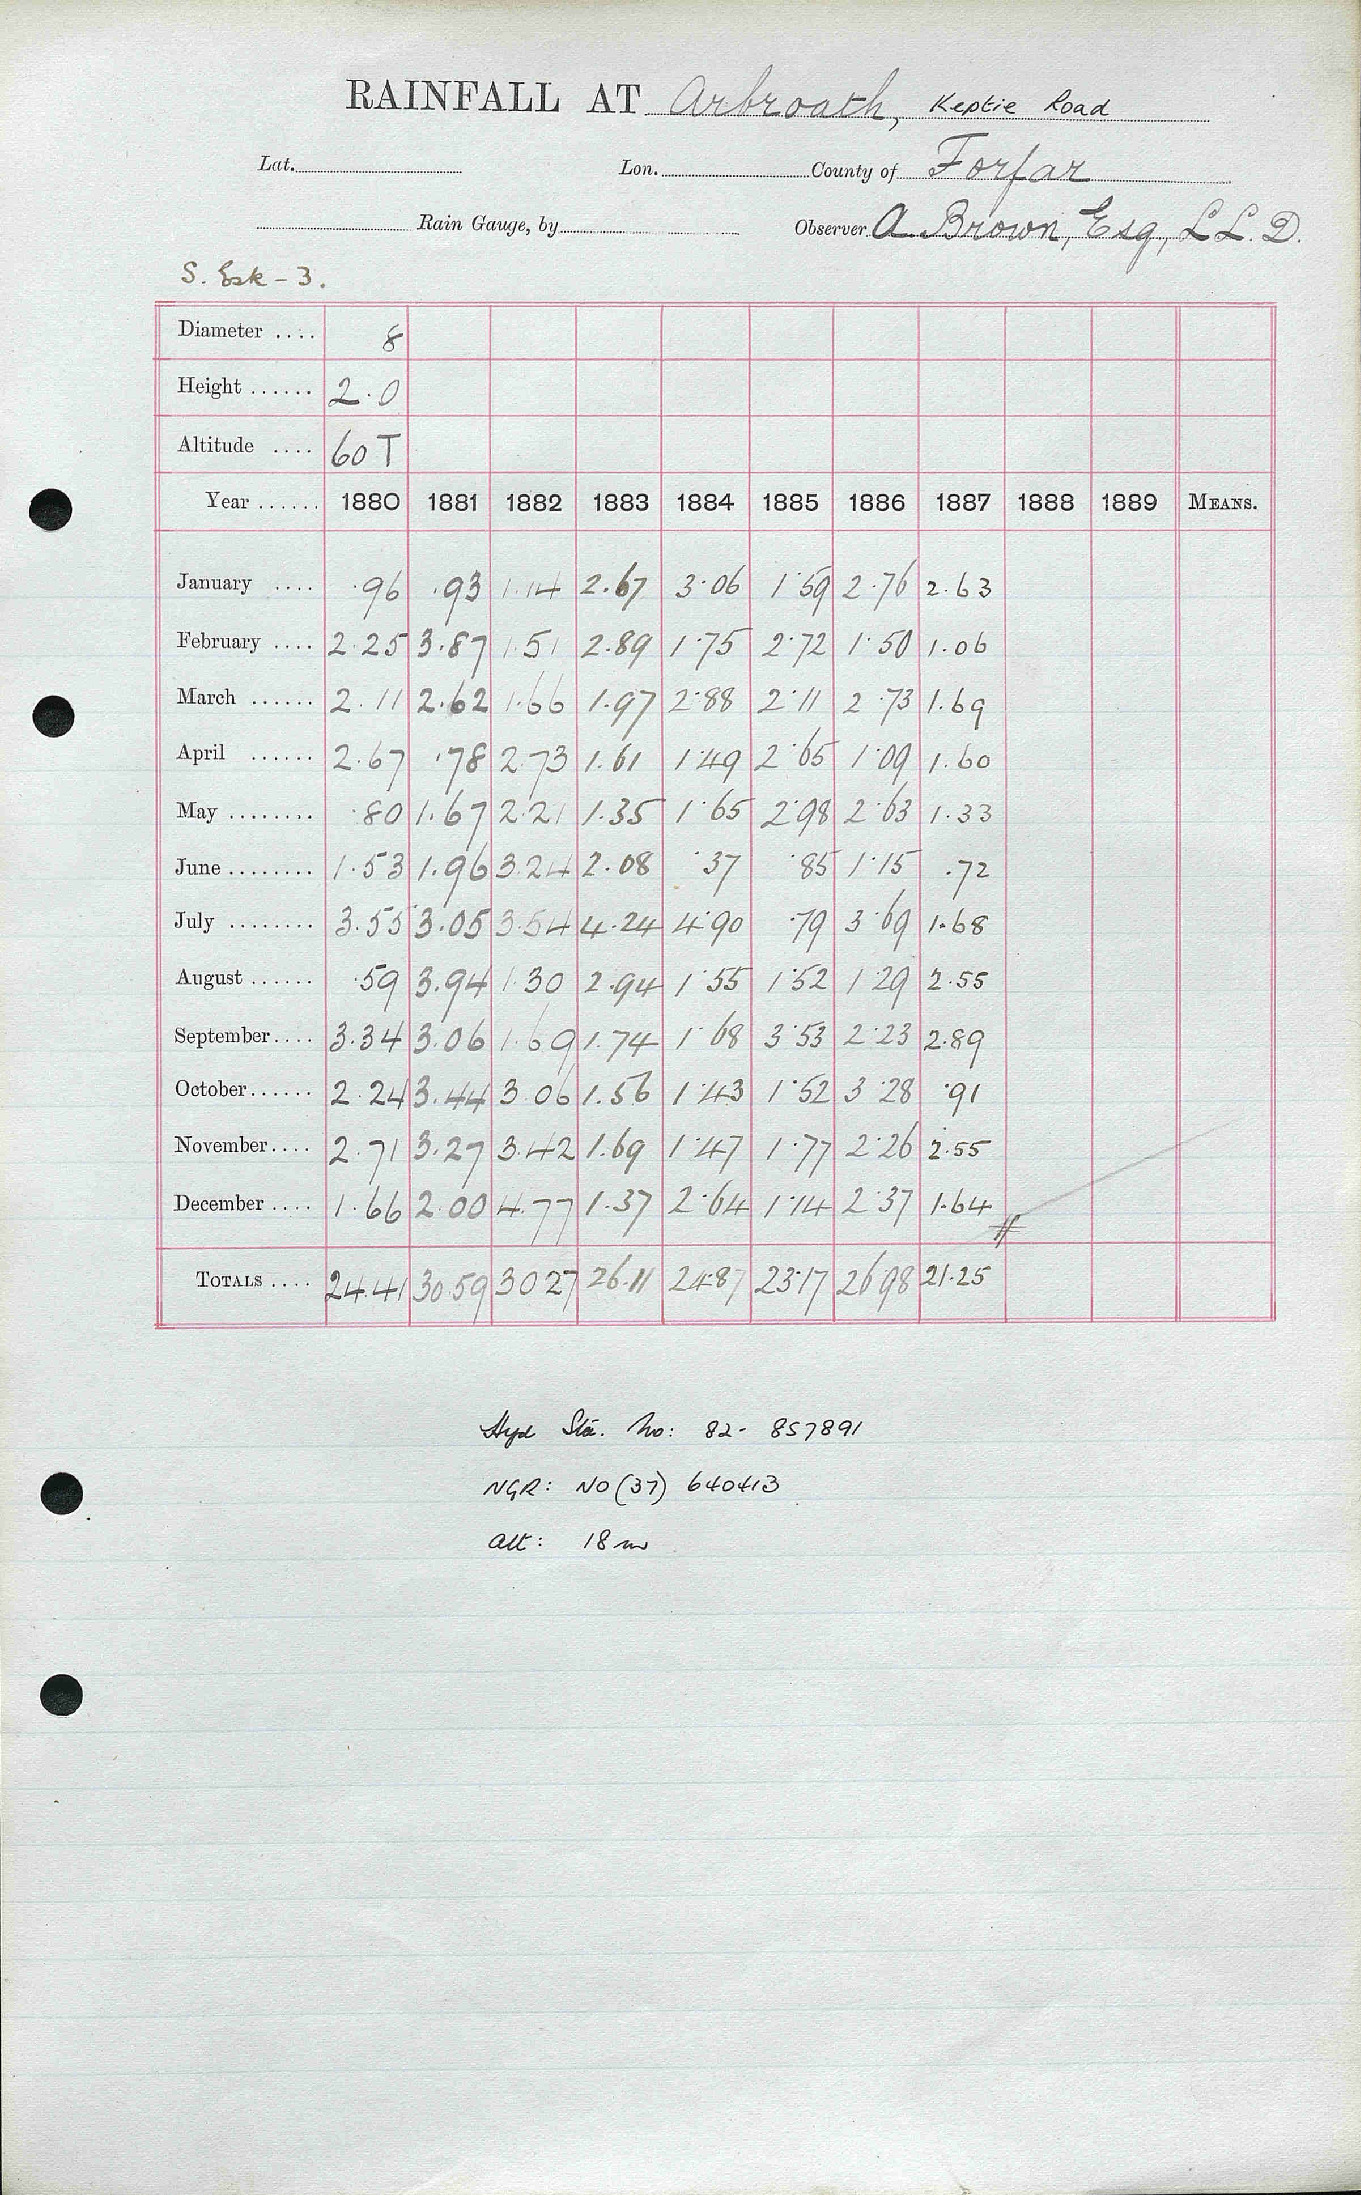 RAINFALL AT Arbroath, Keptie Road
Lat. Lon. County of Forfar
Rain Gauge, by Observer A Brown, Esq, LL.D.
S. Esk - 3.
Diameter .... 8
Height ...... 2.0
Altitude .... 60 T
Year ...... 1880 1881 1882 1883 1884 1885 1886 1887 1888 1889 MEANS.
January .... .96 .93 1.14 2.67 3.06 1.59 2.76 2.63
February .... 2.25 3.87 1.51 2.89 1.75 2.72 1.50 1.06
March ...... 2.11 2.62 1.66 1.97 2.88 2.11 2.73 1.69
April ...... 2.67 .78 2.73 1.61 1.49 2.65 1.09 1.60
May ........ .80 1.67 2.21 1.35 1.65 2.98 2.63 1.33
June ........ 1.53 1.96 3.24 2.08 .37 .85 1.15 .72
July ........ 3.55 3.05 3.54 4.24 4.90 .79 3.69 1.68
August ...... .59 3.94 1.30 2.94 1.55 1.52 1.29 2.55
September.... 3.34 3.06 1.69 1.74 1.68 3.53 2.23 2.89
October...... 2.24 3.44 3.06 1.56 1.43 1.52 3.28 .91
November.... 2.71 3.27 3.42 1.69 1.47 1.77 2.26 2.55
December .... 1.66 2.00 4.77 1.37 2.64 1.14 2.37 1.64
TOTALS .... 24.41 30.59 30.27 26.11 24.87 23.17 26.98 21.25
Hyd Sta. No: 82- 857891
NGR: NO (37) 640413
Alt: 18 m